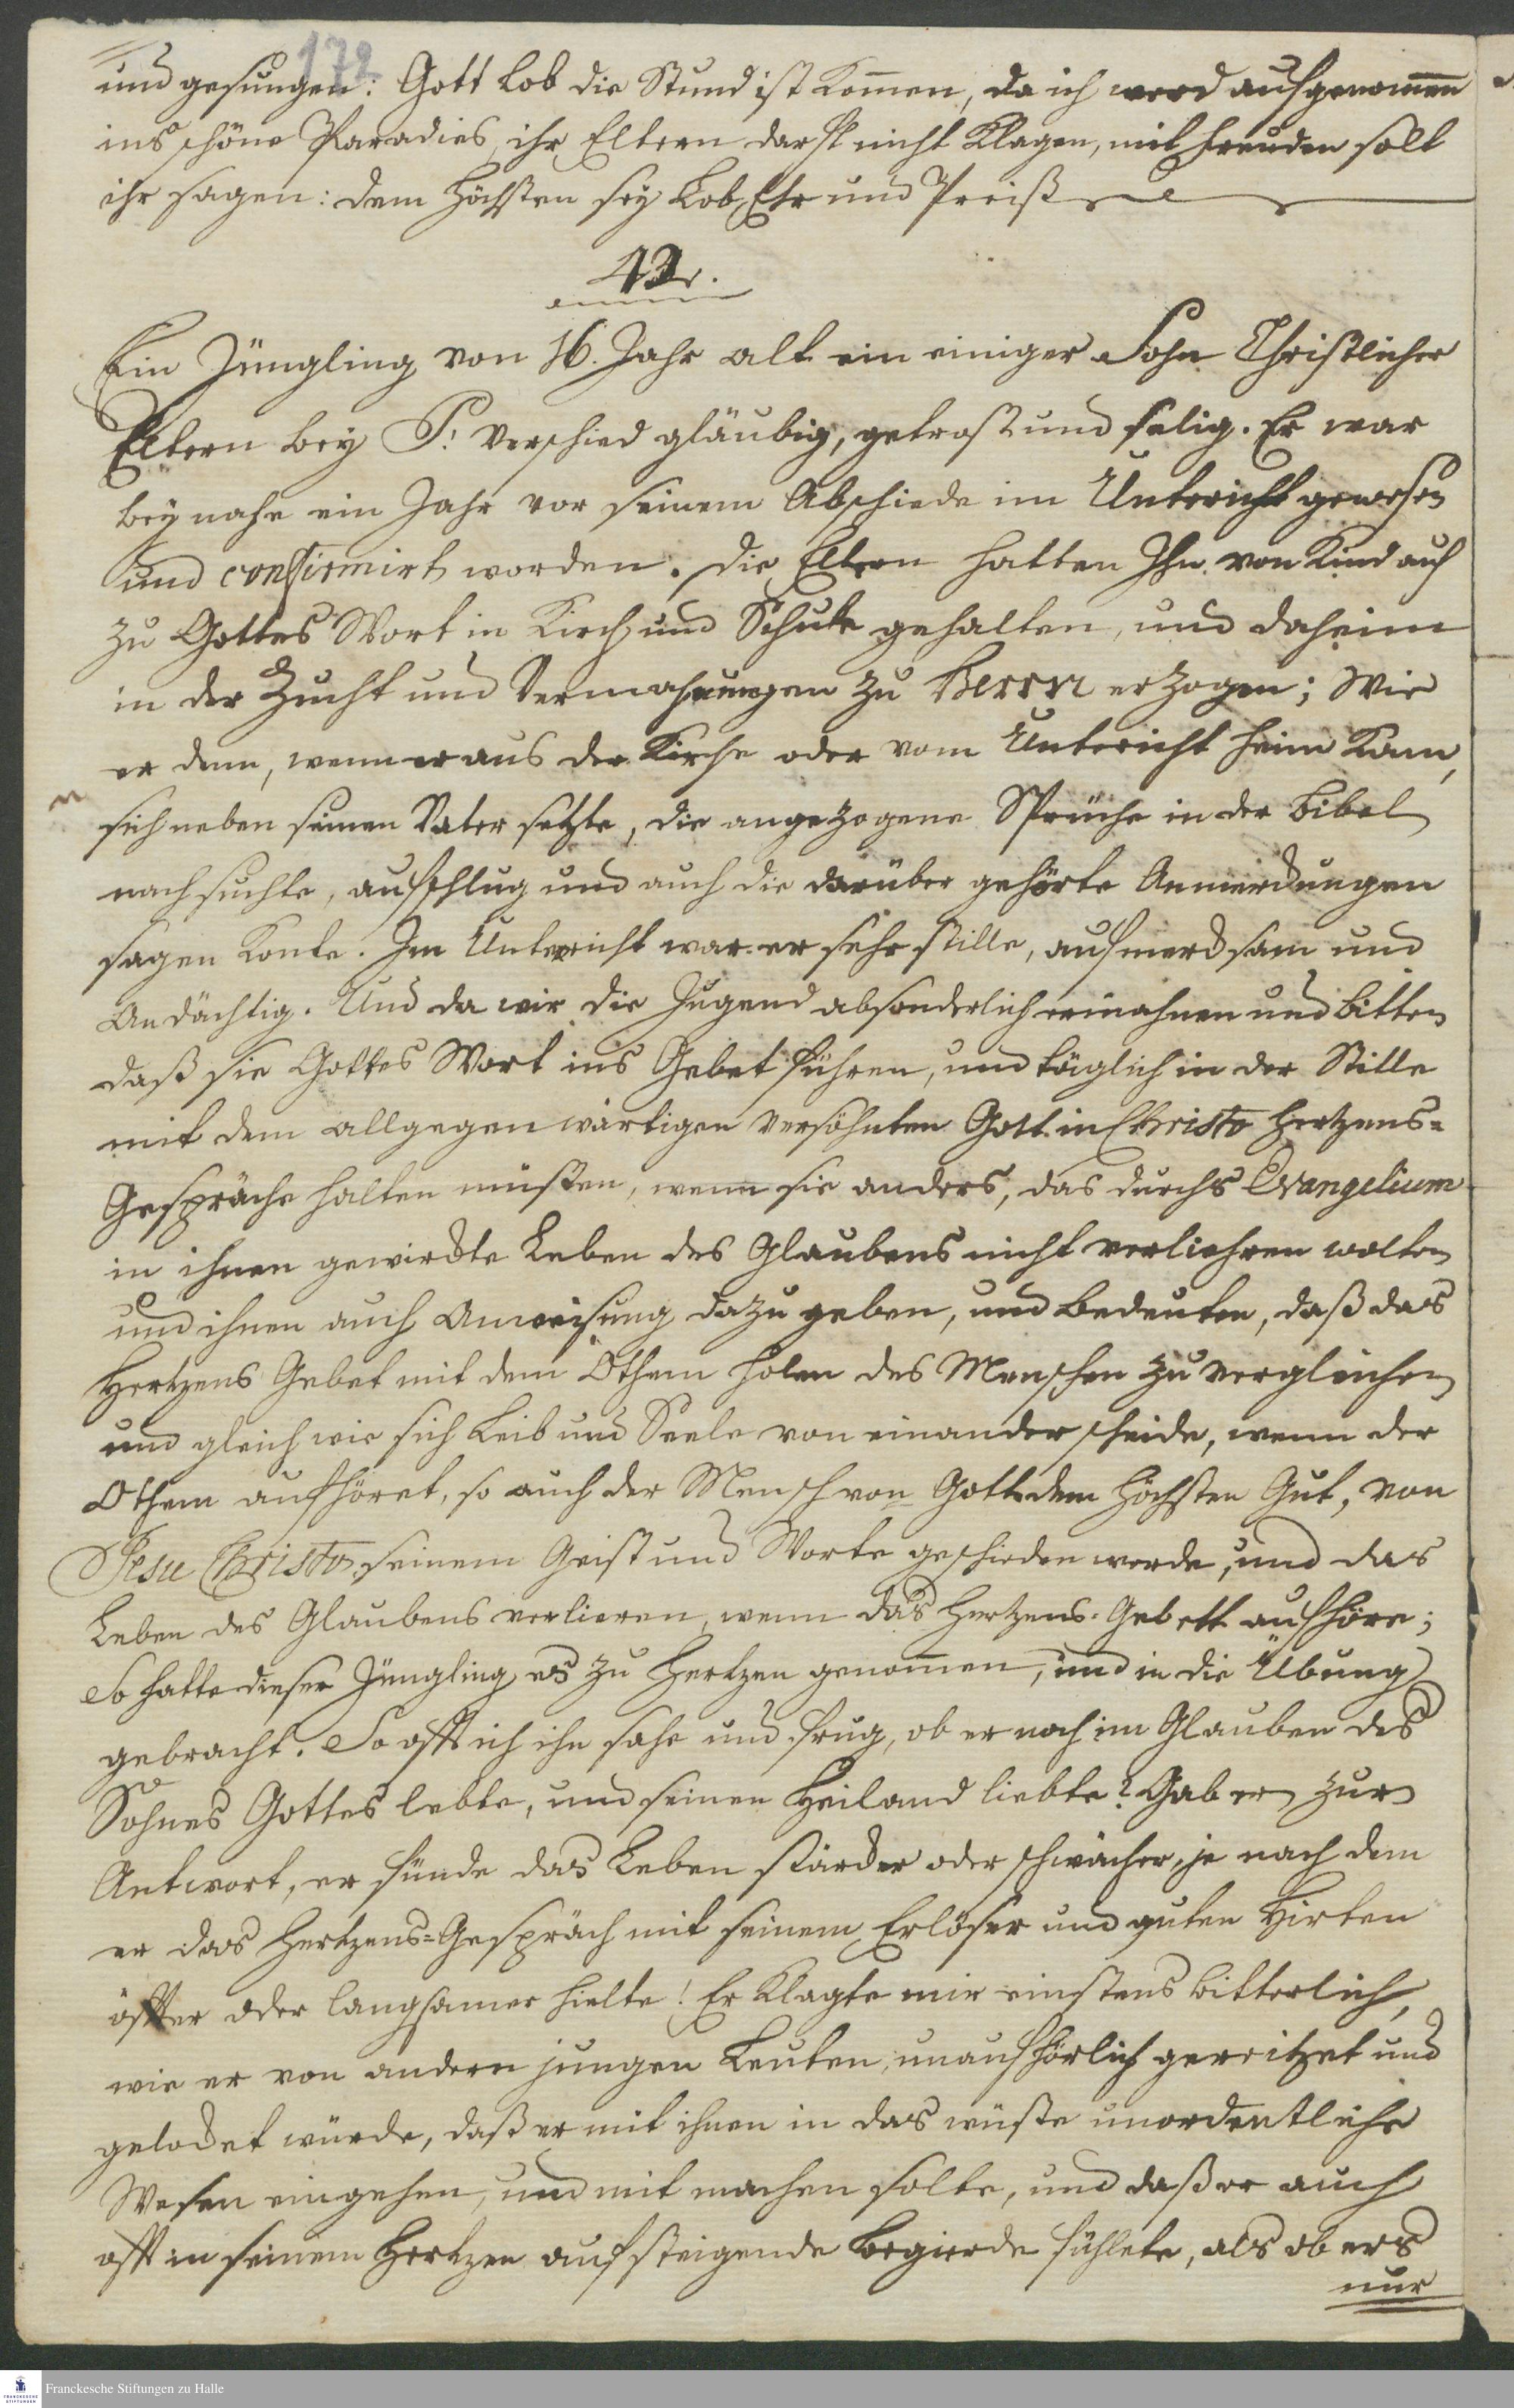 172
und gesungen: Gott Lob die Stund ist kom̅en, da ich werd aufgenom̅en
ins schöne Paradies, ihr Eltern darft nicht klagen, mit Freuden solt
ihr sagen: dem Höchsten sey Lob, Ehr und Preiß
42.
Ein Jüngling von 16. Jahr alt ein einiger Sohn Christlicher
Eltern bey P: verschied gläubig, getrost und selig. Er war
bey nahe ein Jahr vor seinem Abschiede im Untericht gewesen
und confirmirt worden. Die Eltern hatten Ihn von Kind auf
zu Gottes Wort in Kirch und Schule gehalten, und daheim
in der Zucht und Vermahnungen zu Herrn erzogen; Wie
er denn, wenn er aus der Kirche oder vom Untericht heim kam,
sich neben seinen Vater setzte, die angezogene Sprüche in der Bibel
nach suchte, aufschlug und auch die darüber gehörte Anmerckungen
sagen konte. Im Unterricht war er sehr stille, aufmercksam und
Andächtig. Und da wir die Jugend absonderlich ermahnen und bitten
daß sie Gottes Wort ins Gebet führen, und täglich in der Stille
mit dem allgegenwärtigen versöhnten Gott in Christo Hertzens-
Gespräche halten müsten, wenn sie anders, das durchs Evangelium
in ihnen gewirckte Leben des Glaubens nicht verliehren wolten
und ihnen auch Anweisung dazu geben, und bedeuten, daß das
Hertzens Gebet mit dem Othem holen des Menschen zu vergleichen
und gleich wie sich Leib und Seele von einander scheide, wenn der
Othem aufhöret, so auch der Mensch von Gott dem höchsten Gut, von
Jesu Christo, seinem Geist und Worte geschieden werde, und das
Leben des Glaubens verlieren, wenn das Hertzens-Gebett aufhöre;
So hatte dieser Jüngling es zu Hertzen genom̅en, und in die Übung
gebracht. So offt ich ihn sahe und frug, ob er noch im Glauben des
Sohnes Gottes lebte, und seinen Heiland liebte? Gab er zur
Antwort, er fünde das Leben stärcker oder schwächer, je nach dem
er das Hertzens-Gespräch mit seinem Erlöser und guten Hirten
öffter oder langsamer hielte! Er klagte mir einstens bitterlich,
wie er von andern jungen Leuten, unaufhörlich gereitzet und
gelocket würde, daß er mit ihnen in das wüste unordentliche
Wesen eingehen, und mit machen solte, und daß er auch
offt in seinem Hertzen aufsteigende Begierde fühlete, als ob ers
nur
Franckesche Stiftungen zu Halle